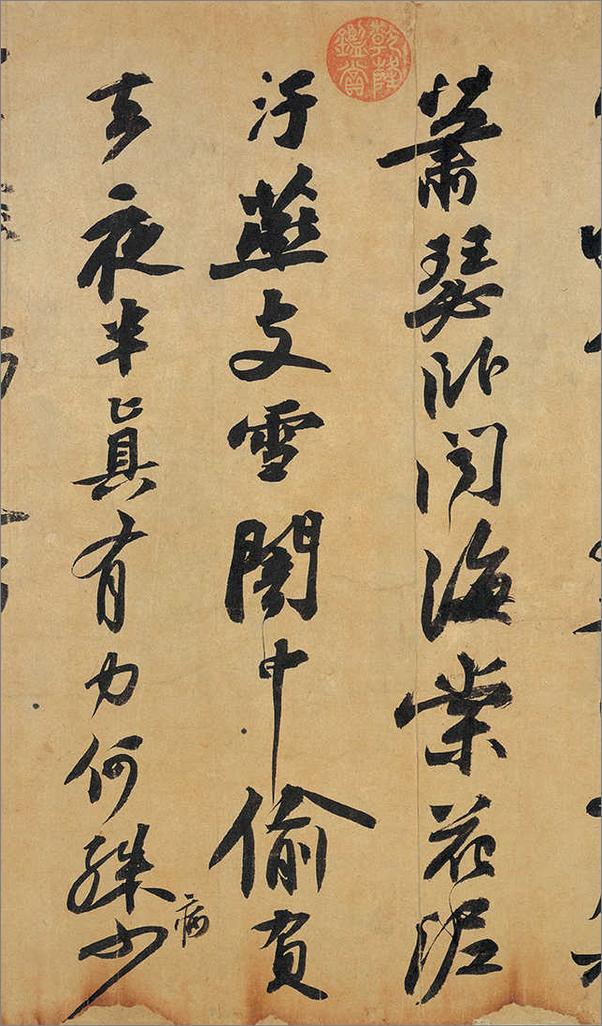 乾隆鑑賞
蕭瑟臥聞海棠花泥
汙燕支雪闇中偷負
去夜半眞有力何殊少
病